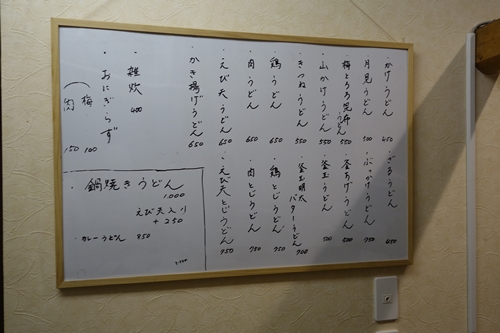 ・かけうどん 450
・月見うどん 500
・梅とろろ昆布うどん 550
・山かけうどん 550
・きつねうどん 550
・鶏うどん 650
・肉うどん 650
・えび天うどん 650
・かき揚げうどん 650
・雑炊 400
・おにぎらず
(梅 100
肉 150
・ざるうどん 450
・ぶっかけうどん 750
・釜あげうどん 500
・釜玉うどん 500
・釜玉明太バターうどん 700
・鶏とじうどん 750
・肉とじうどん 750
・えび天とじうどん 750
・鍋焼きうどん
1,000
えび天入り
+250
・カレーうどん 850